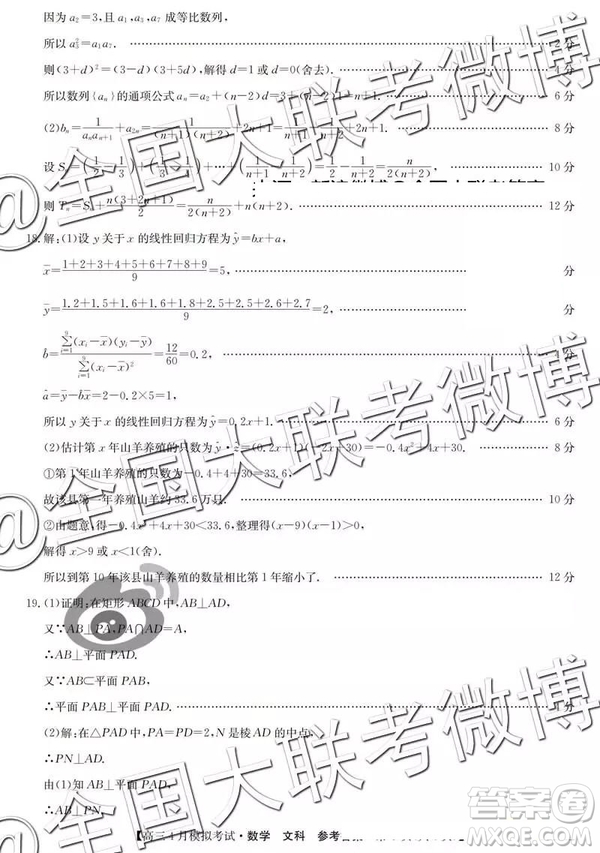 因为 a₂=3,且 a₁,a₃,a₇ 成等比数列,
所以 a₃²=a₁a₇. 2 分
则(3+d)²=(3-d)(3+5d),解得 d=1 或 d=0(舍去). 4 分
所以数列{aₙ}的通项公式 aₙ=a₂+(n-2)d=n+1. 6 分
(2)bₙ=1/(aₙaₙ₊₁)+aₙ=1/((n+1)(n+2))+2n+1=+2n+1. 8 分
设 Sₙ=(1/2-1/3)+(1/3-)+…+(1/(n+1)-1/(n+2))=1/2-1/(n+2)=n/(2(n+2)). 10 分
则 Tₙ=Sₙ+n(3+2n+1)/=n/(2(n+2)) 12 分
18.解:(1)设 y 关于 x 的线性回归方程为 ŷ=bx+a,
x̄=(1+2+3+4+5+6+7+8+9)/9=5, 分
ȳ=(1.2+1.5+1.6+1.6+1.8+2.5+2.5+2.6+2.7)/9=2, 分
b=∑(xᵢ-x̄)(yᵢ-ȳ)/∑(xᵢ-x̄)²=12/60=0.2, 4 分
â=ȳ-bx̄=2-0.2×5=1,
所以 y 关于 x 的线性回归方程为 ŷ=0.2x+1. 6 分
(2)估计第 x 年山羊养殖的只数为 ŷ·ẑ=(0.2x+1)(-2x+30)=-0.4x²+4x+30. 8 分
①第 1 年山羊养殖的只数为-0.4+4+30=33.6,
故该县第一年养殖山羊约 33.6 万只. 10 分
②由题意,得-0.4x²+4x+30<33.6,整理得(x-9)(x-1)>0,
解得 x>9 或 x<1(舍).
所以到第 10 年该县山羊养殖的数量相比第 1 年缩小了. 12 分
19.(1)证明:在矩形 ABCD 中,AB⊥AD,
又∵AB⊥PA,PA∩AD=A,
∴AB⊥平面 PAD.
又∵AB⊂平面 PAB,
∴平面 PAB⊥平面 PAD. 4 分
(2)解:在△PAD 中,PA=PD=2,N 是棱 AD 的中点,
∴PN⊥AD.
由(1)知 AB⊥平面 PAD,
∴AB⊥PN.
【高三4月模拟考试·数学 文科 参考
@全国大联考微博
@全国大联考微博
@全国大联考微博
答案圈
MXQE.COM